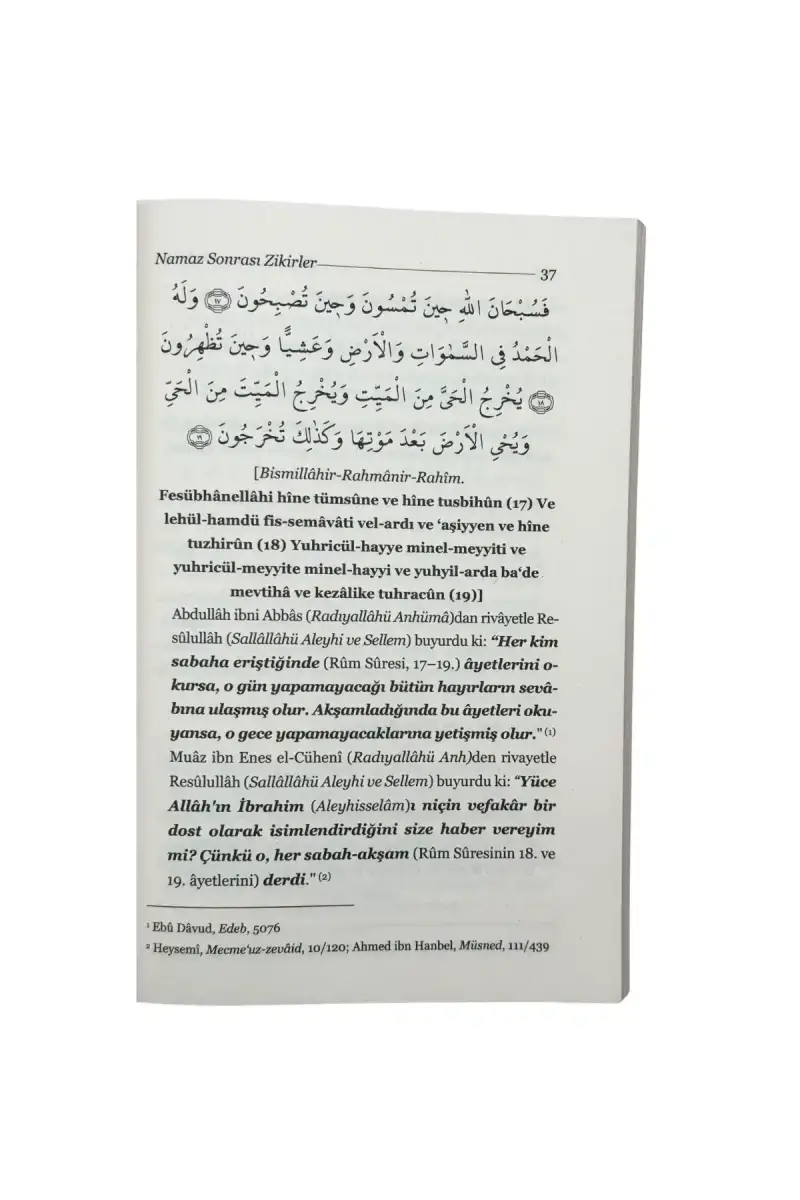 Namaz Sonrası Zikirler 37
فَسُبْحَانَ اللّٰهِ ح۪ينَ تُمْسُونَ وَح۪ينَ تُصْبِحُونَ ﴿١٧﴾ وَلَهُ
الْحَمْدُ فِي السَّمٰوَاتِ وَالْاَرْضِ وَعَشِيًّا وَح۪ينَ تُظْهِرُونَ
﴿١٨﴾ يُخْرِجُ الْحَيَّ مِنَ الْمَيِّتِ وَيُخْرِجُ الْمَيِّتَ مِنَ الْحَيِّ
وَيُحْيِ الْاَرْضَ بَعْدَ مَوْتِهَا وَكَذٰلِكَ تُخْرَجُونَ ﴿١٩﴾
[Bismillâhir-Rahmânir-Rahîm.
Fesübhânellâhi hîne tümsûne ve hîne tusbihûn (17) Ve
lehül-hamdü fis-semâvâti vel-ardı ve ‘aşiyyen ve hîne
tuzhirûn (18) Yuhricül-hayye minel-meyyiti ve
yuhricül-meyyite minel-hayyi ve yuhyil-arda ba‘de
mevtihâ ve kezâlike tuhracûn (19)]
Abdullâh ibni Abbâs (Radıyallâhü Anhümâ)dan rivâyetle Re-
sûlullâh (Sallâllâhü Aleyhi ve Sellem) buyurdu ki: “Her kim
sabaha eriştiğinde (Rûm Sûresi, 17–19.) âyetlerini o-
kursa, o gün yapamayacağı bütün hayırların sevâ-
bına ulaşmış olur. Akşamladığında bu âyetleri oku-
yansa, o gece yapamayacaklarına yetişmiş olur." (1)
Muâz ibn Enes el-Cühenî (Radıyallâhü Anh)den rivayetle
Resûlullâh (Sallâllâhü Aleyhi ve Sellem) buyurdu ki: “Yüce
Allâh'ın İbrahim (Aleyhisselâm)ı niçin vefakâr bir
dost olarak isimlendirdiğini size haber vereyim
mi? Çünkü o, her sabah-akşam (Rûm Sûresinin 18. ve
19. âyetlerini) derdi." (2)
¹ Ebû Dâvud, Edeb, 5076
² Heysemî, Mecme‘uz-zevâid, 10/120; Ahmed ibn Hanbel, Müsned, 111/439